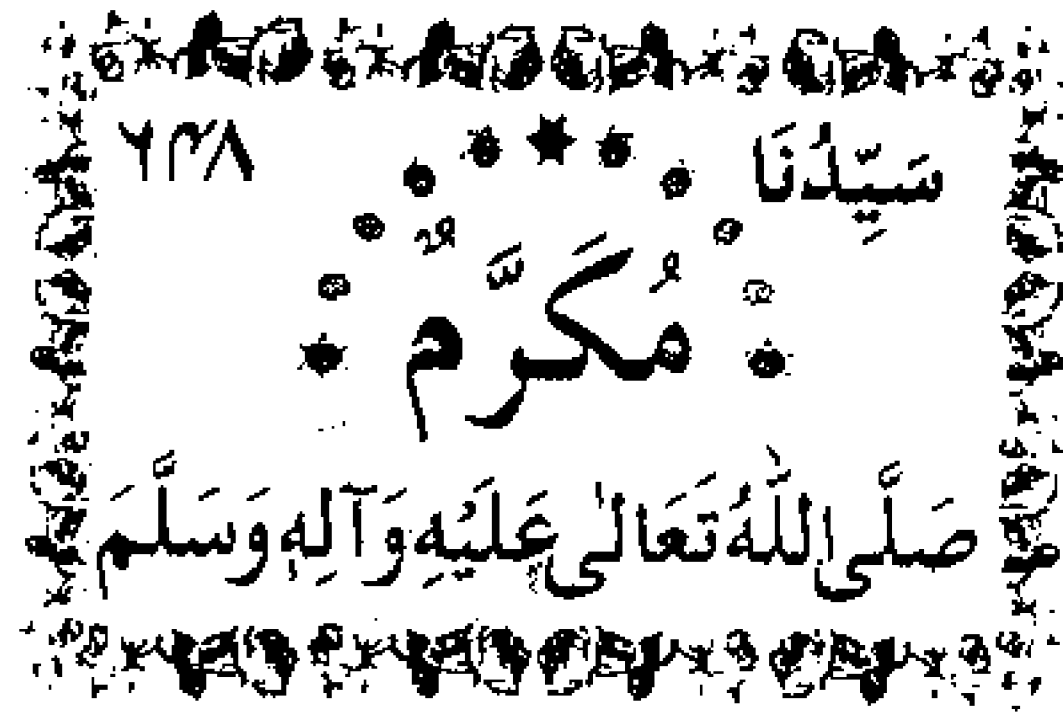 سَيِّدُنَا ٦٣٨
مُكَرَّمٌ
صَلَّى اللّٰهُ تَعَالٰى عَلَيْهِ وَآلِهٖ وَسَلَّمَ